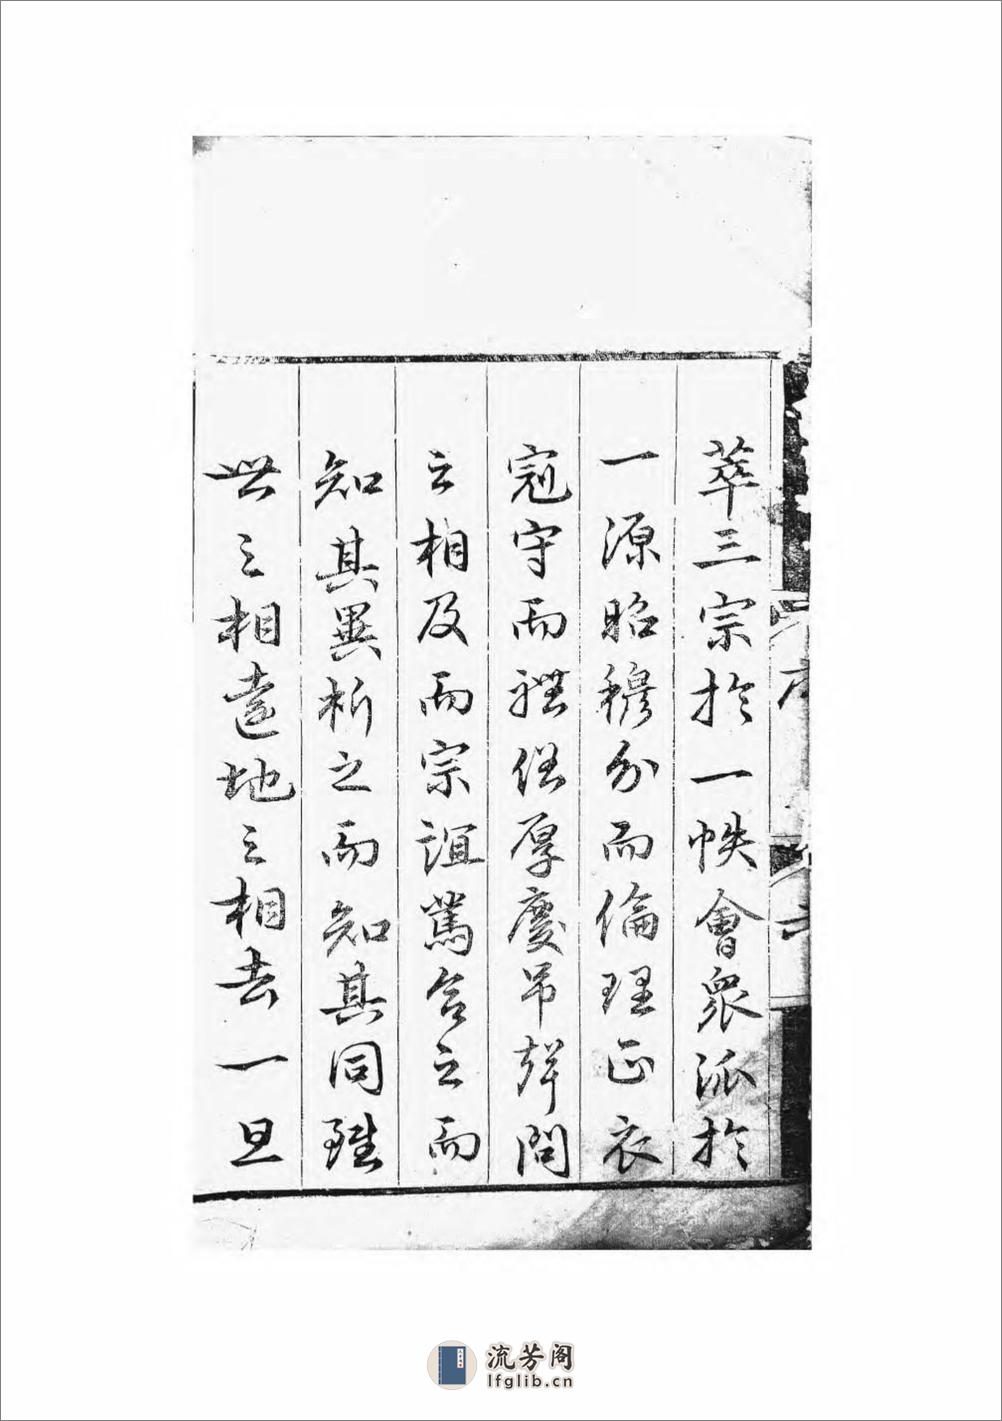 萃三宗於一帙會衆派於
一源昭穆分而倫理正衣
冠守而禮俗厚慶吊聲問
之相及而宗誼篤合之而
知其異析之而知其同雖
世之相遠地之相去一旦
序
流芳阁
lfglib.cn